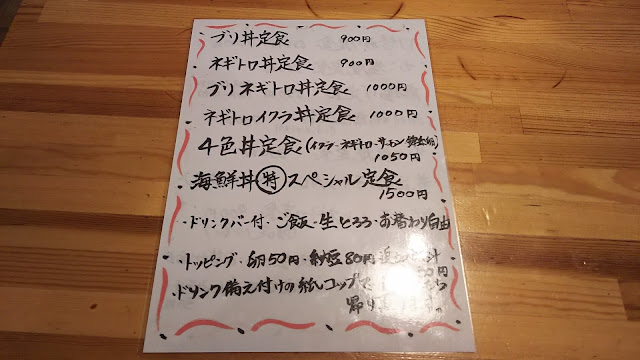 ブリ丼定食 900円
ネギトロ丼定食 900円
ブリネギトロ丼定食 1000円
ネギトロイクラ丼定食 1000円
4色丼定食(イクラ・ネギトロ・サーモン
1050円
海鮮丼㊕スペシャル定食
1500円
・ドリンクバー付・ご飯・生とろろ・お替わり自由
・トッピング・卵50円・納豆80円
0円
・ドリンク備え付けの紙コップ